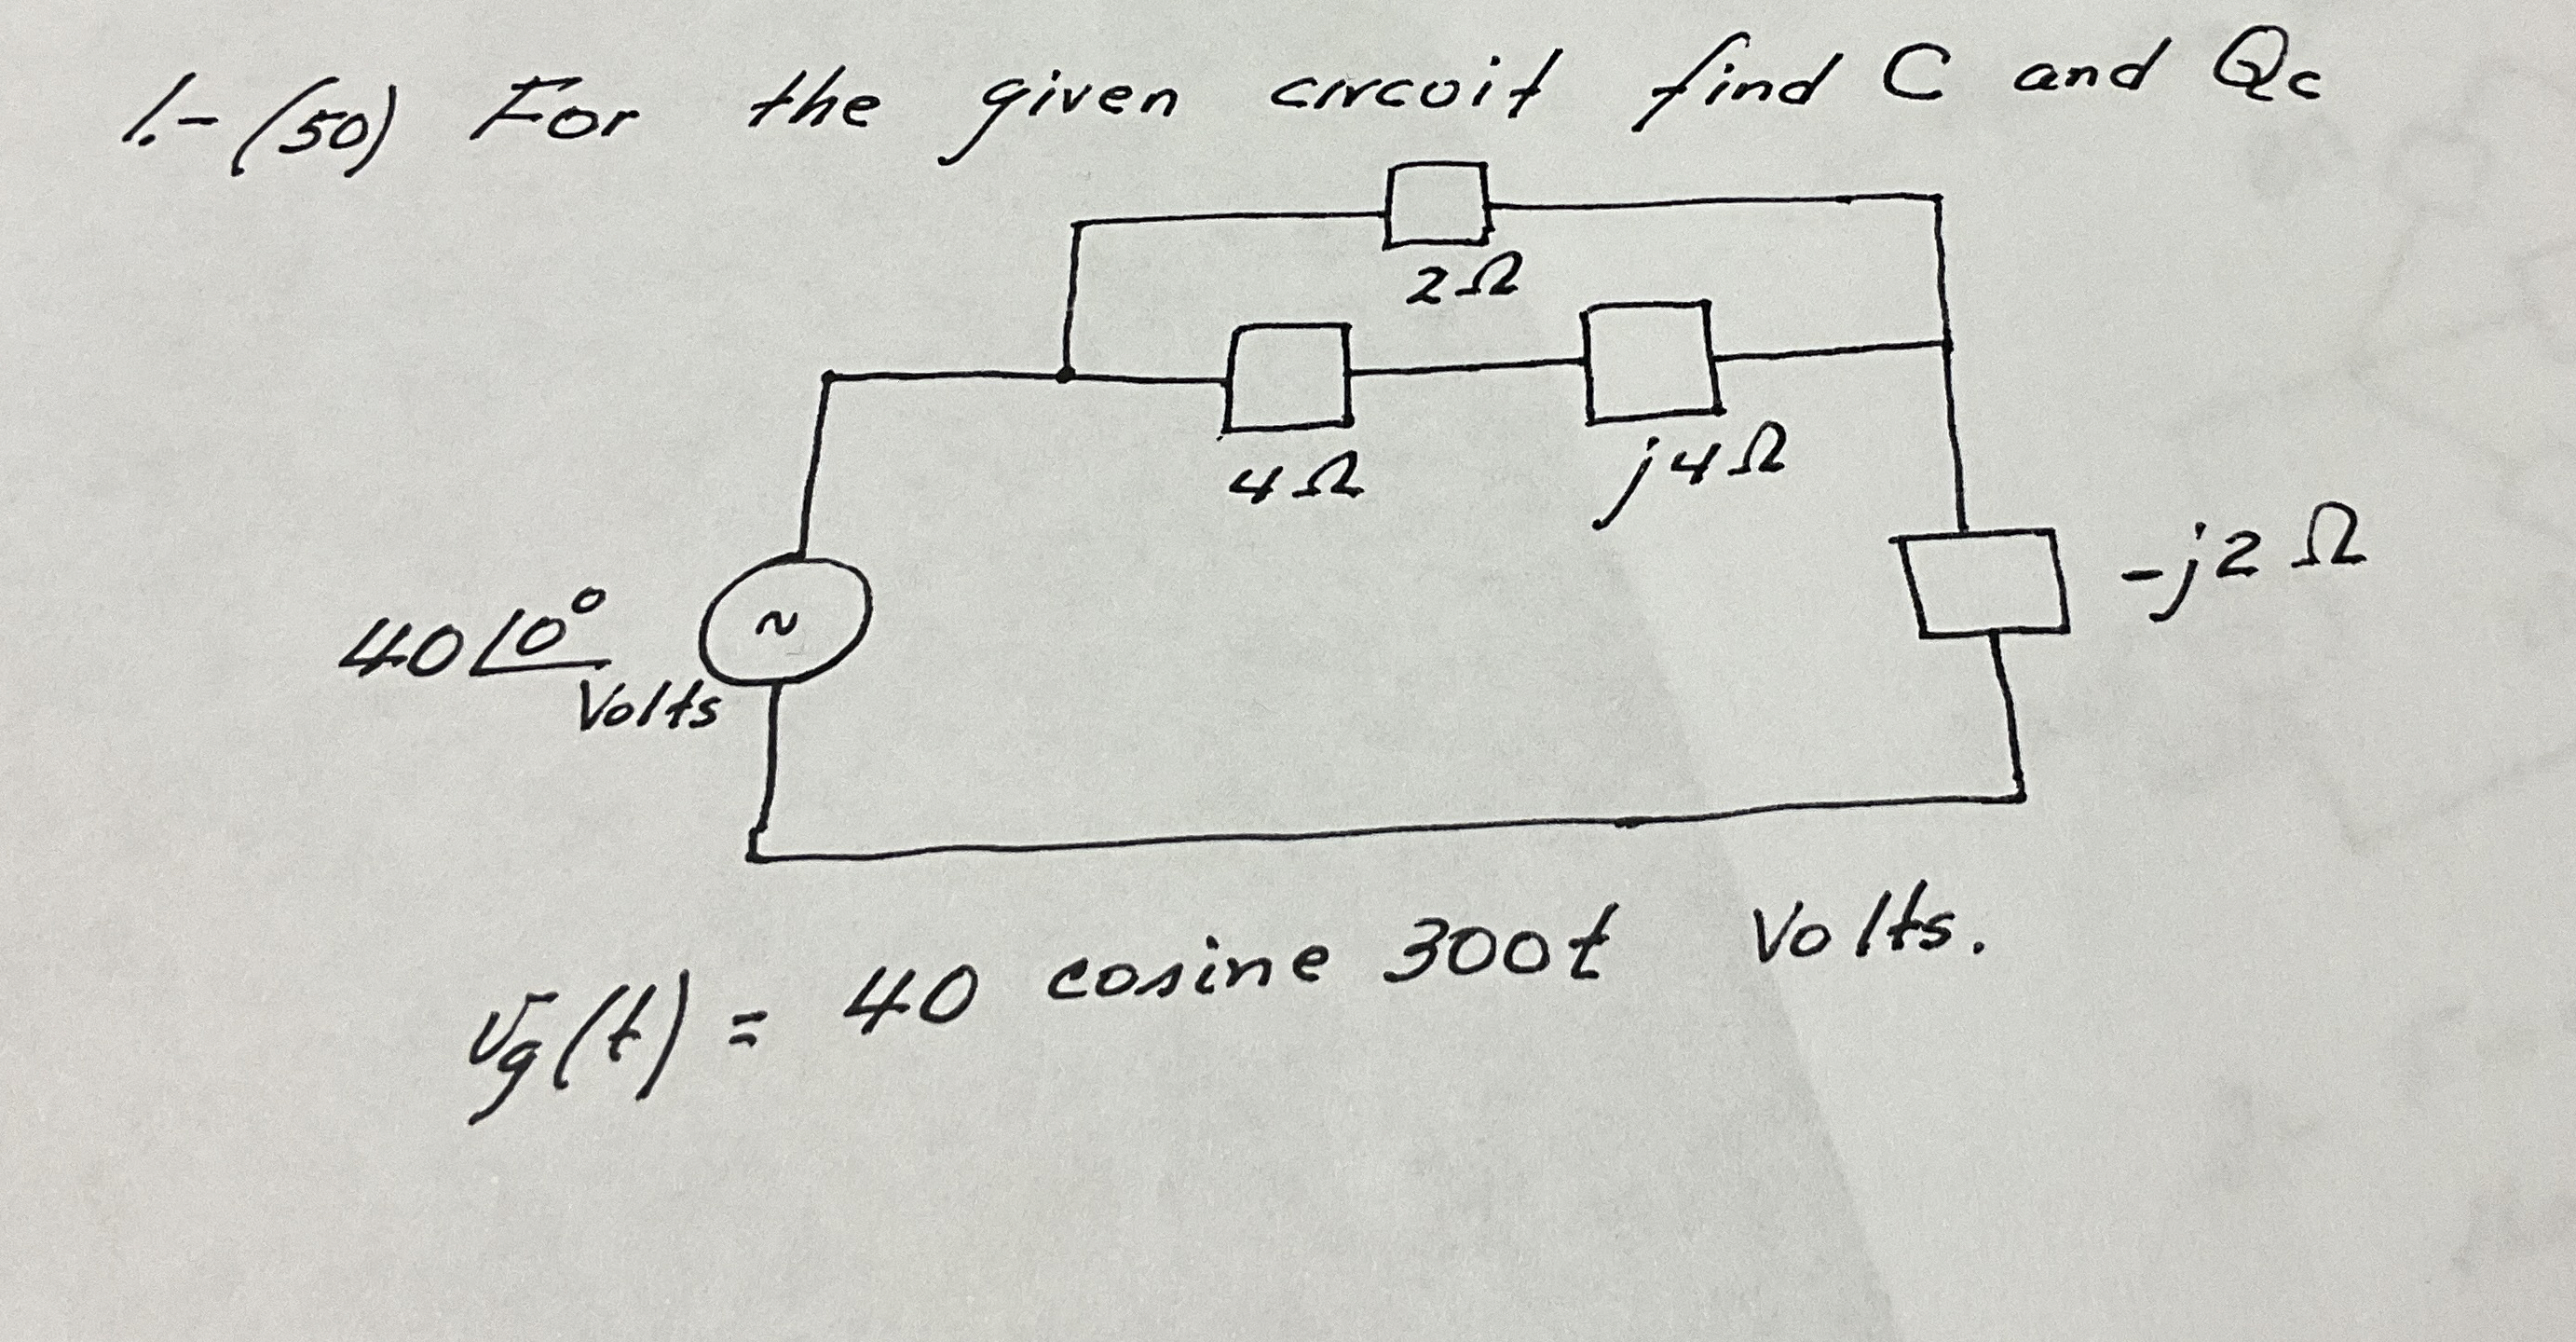 1.- (50) For the given circuit find C and Qc
2Ω
4Ω
j4Ω
-j2Ω
40∠0°
Volts
~
vg(t) = 40 cosine 300t Volts.